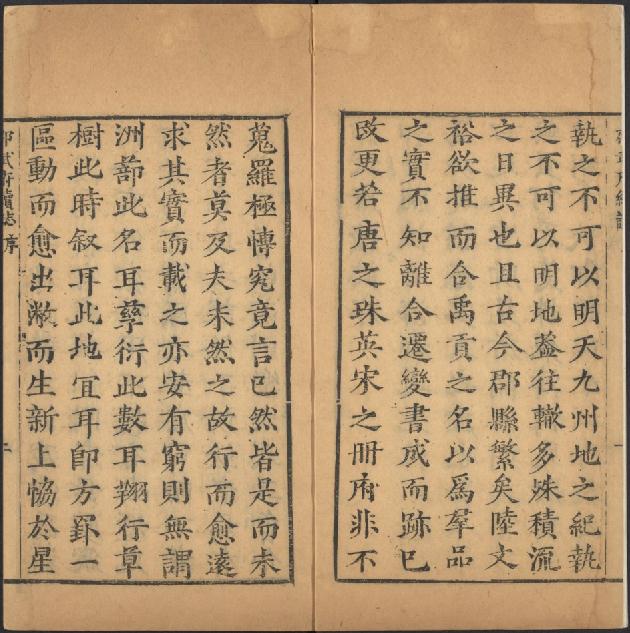 執之不可以明天九州地之紀執
之不可以明地葢往轍多殊積流
之日異也且古今郡縣繁矣陸文
裕欲推而合禹貢之名以爲羣品
之實不知離合遷變書成而跡已
改更若唐之珠英宋之冊府非不
蒐羅極愽究竟言已然皆是而未
然者莫及夫未然之故行而愈遠
求其實而載之亦安有窮則無謂
洲蔀此名耳孳衍此數耳翔行草
樹此時叙耳此地冝耳卽方罫一
區動而愈出敝而生新上恊於星
邵武府續志 序 二